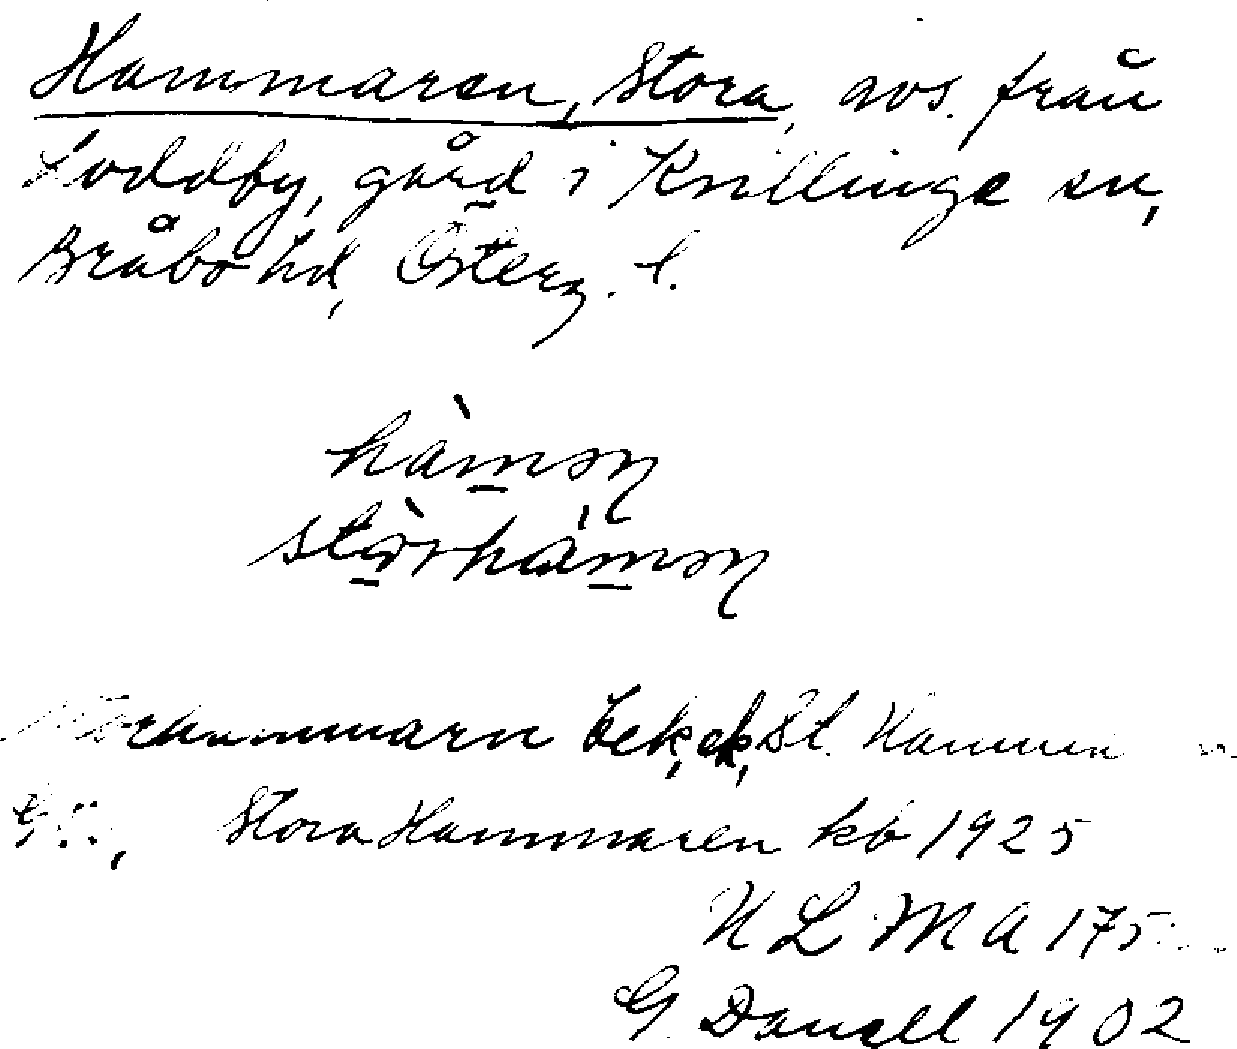 Hammaren, Stora, avs. från
Loddby, gård i Kvillinge sn,
Bråbo hd, Österg. l.
hàmən
stòrhámən
Storhammarn Eek, ek, St. Hammen
Stora Hammaren kb 1925
N L M A 175
G. Danell 1902